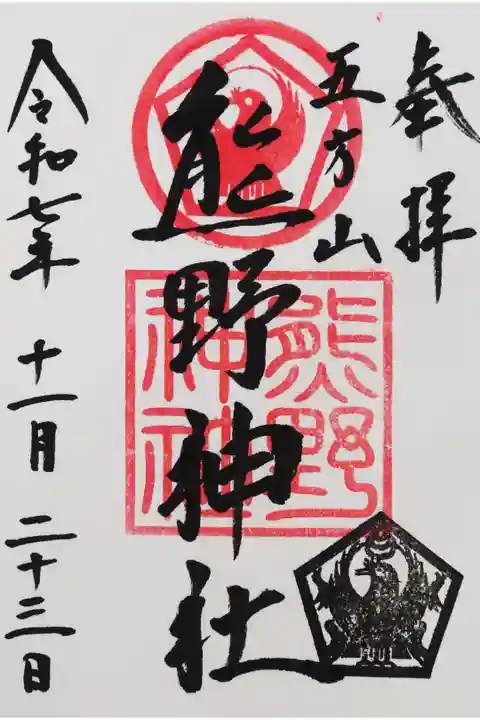 奉拝
五方山
熊野神社
熊野
神社
令和七年 十一月 二十三日